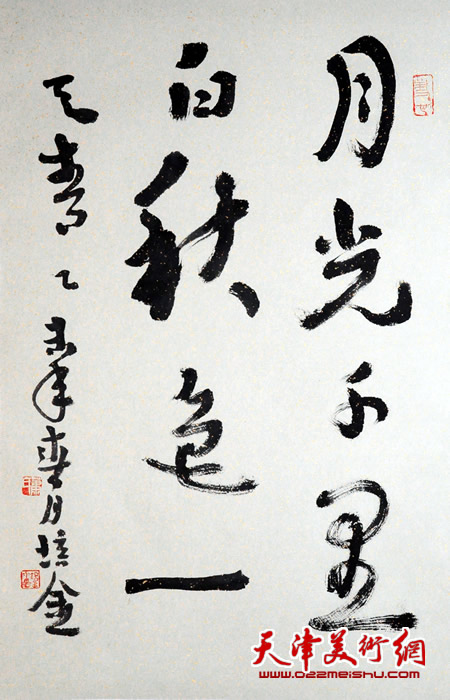 月光千里
白秋色一
天青乙
未年春月培金
天津美術網
www.022meishu.com